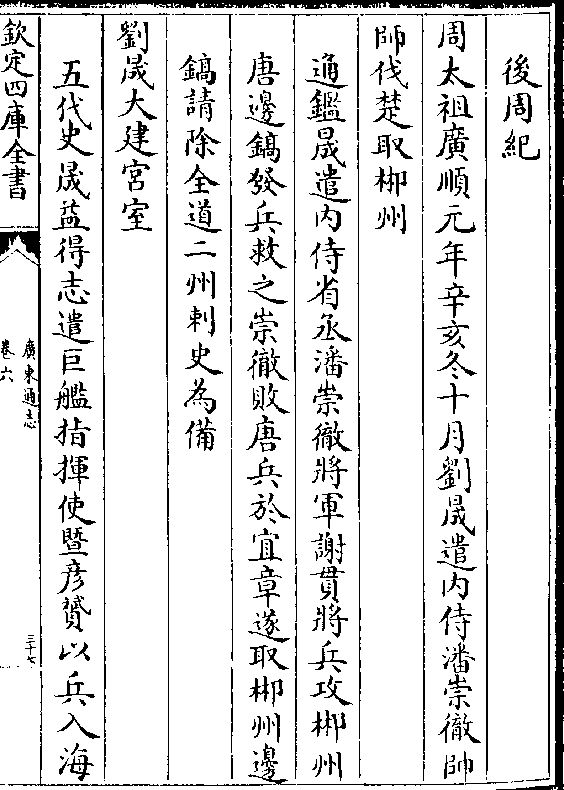 後周紀
周太祖廣順元年辛亥冬十月劉晟遣内侍潘崇徹帥
師伐楚取郴州
通鑑晟遣内侍省丞潘崇徹將軍謝貫將兵攻郴州
唐邊鎬發兵救之崇徹敗唐兵於宜章遂取郴州邊
鎬請除全道二州刺史為備
劉晟大建宫室
五代史晟益得志遣巨艦指揮使暨彦贇以兵入海
欽定四庫全書
廣東通志
卷六
三十七